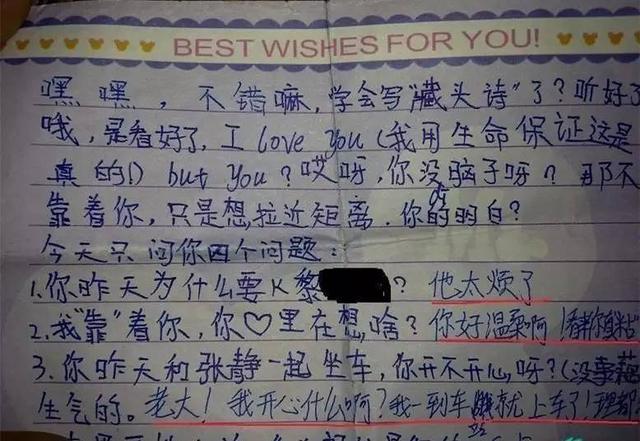 BEST WISHES FOR YOU!
嘿嘿，不错嘛，学会写"藏头诗"了？听好了
哦，是看好了，I love you（我用生命保证这是
真的!）but you？哎呀，你没脑子呀？那不
靠着你，只是想拉近距离．你的明白？
今天只问你四个问题：
1.你昨天为什么要K黎？他太烦了
2.我"靠"着你，你♡里在想啥？你好温柔啊！
3.你昨天和张静一起坐车，你开不开心呀？（没事
生气的。老大！我开心什么啊？我一到车就上车了！理都